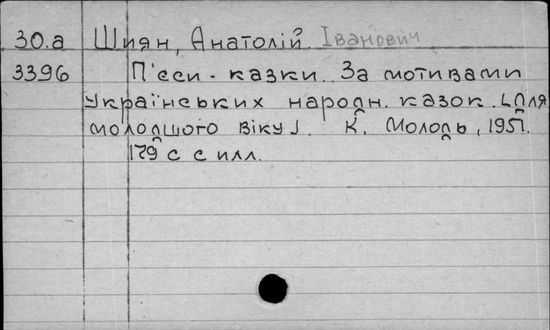 30.а Шиян, Анатолій Іванович
3396 П'єси - казки. За мотивами
українських народн. казок. [Для
молодшого віку]. К. Молодь, 1951.
179 с с илл.